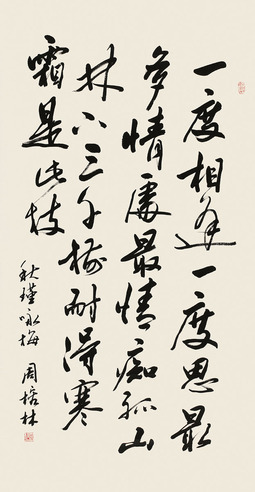 一度相逢一度思最
多情處最情痴孤山
林下三千樹耐得寒
霜是此枝
秋瑾咏梅 周 林